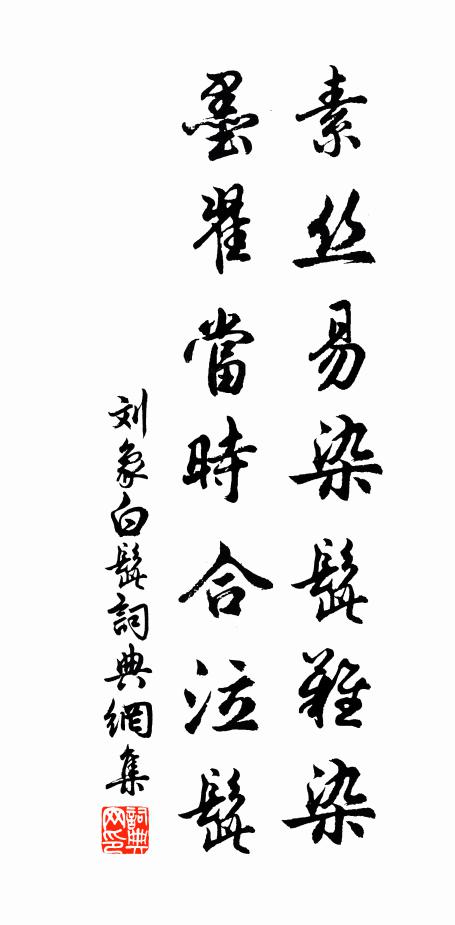 素丝易染髭難染
墨翟當時合泣髭
刘象白髭詞典網集
詞典网印